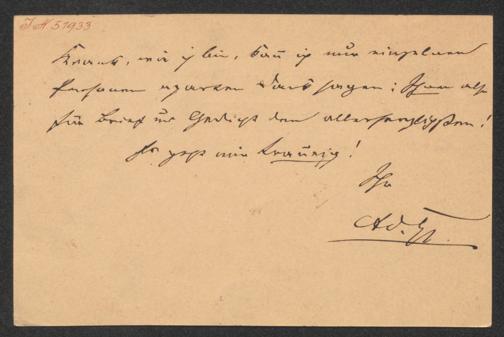 J.N. 51933
Krank, wie ich bin, kann ich nur einzelnen
Personen aparten Dank sagen: Ihnen also
für Brief und Gedicht den allerherzlichsten!
Es geht mir traurig!
Ihr